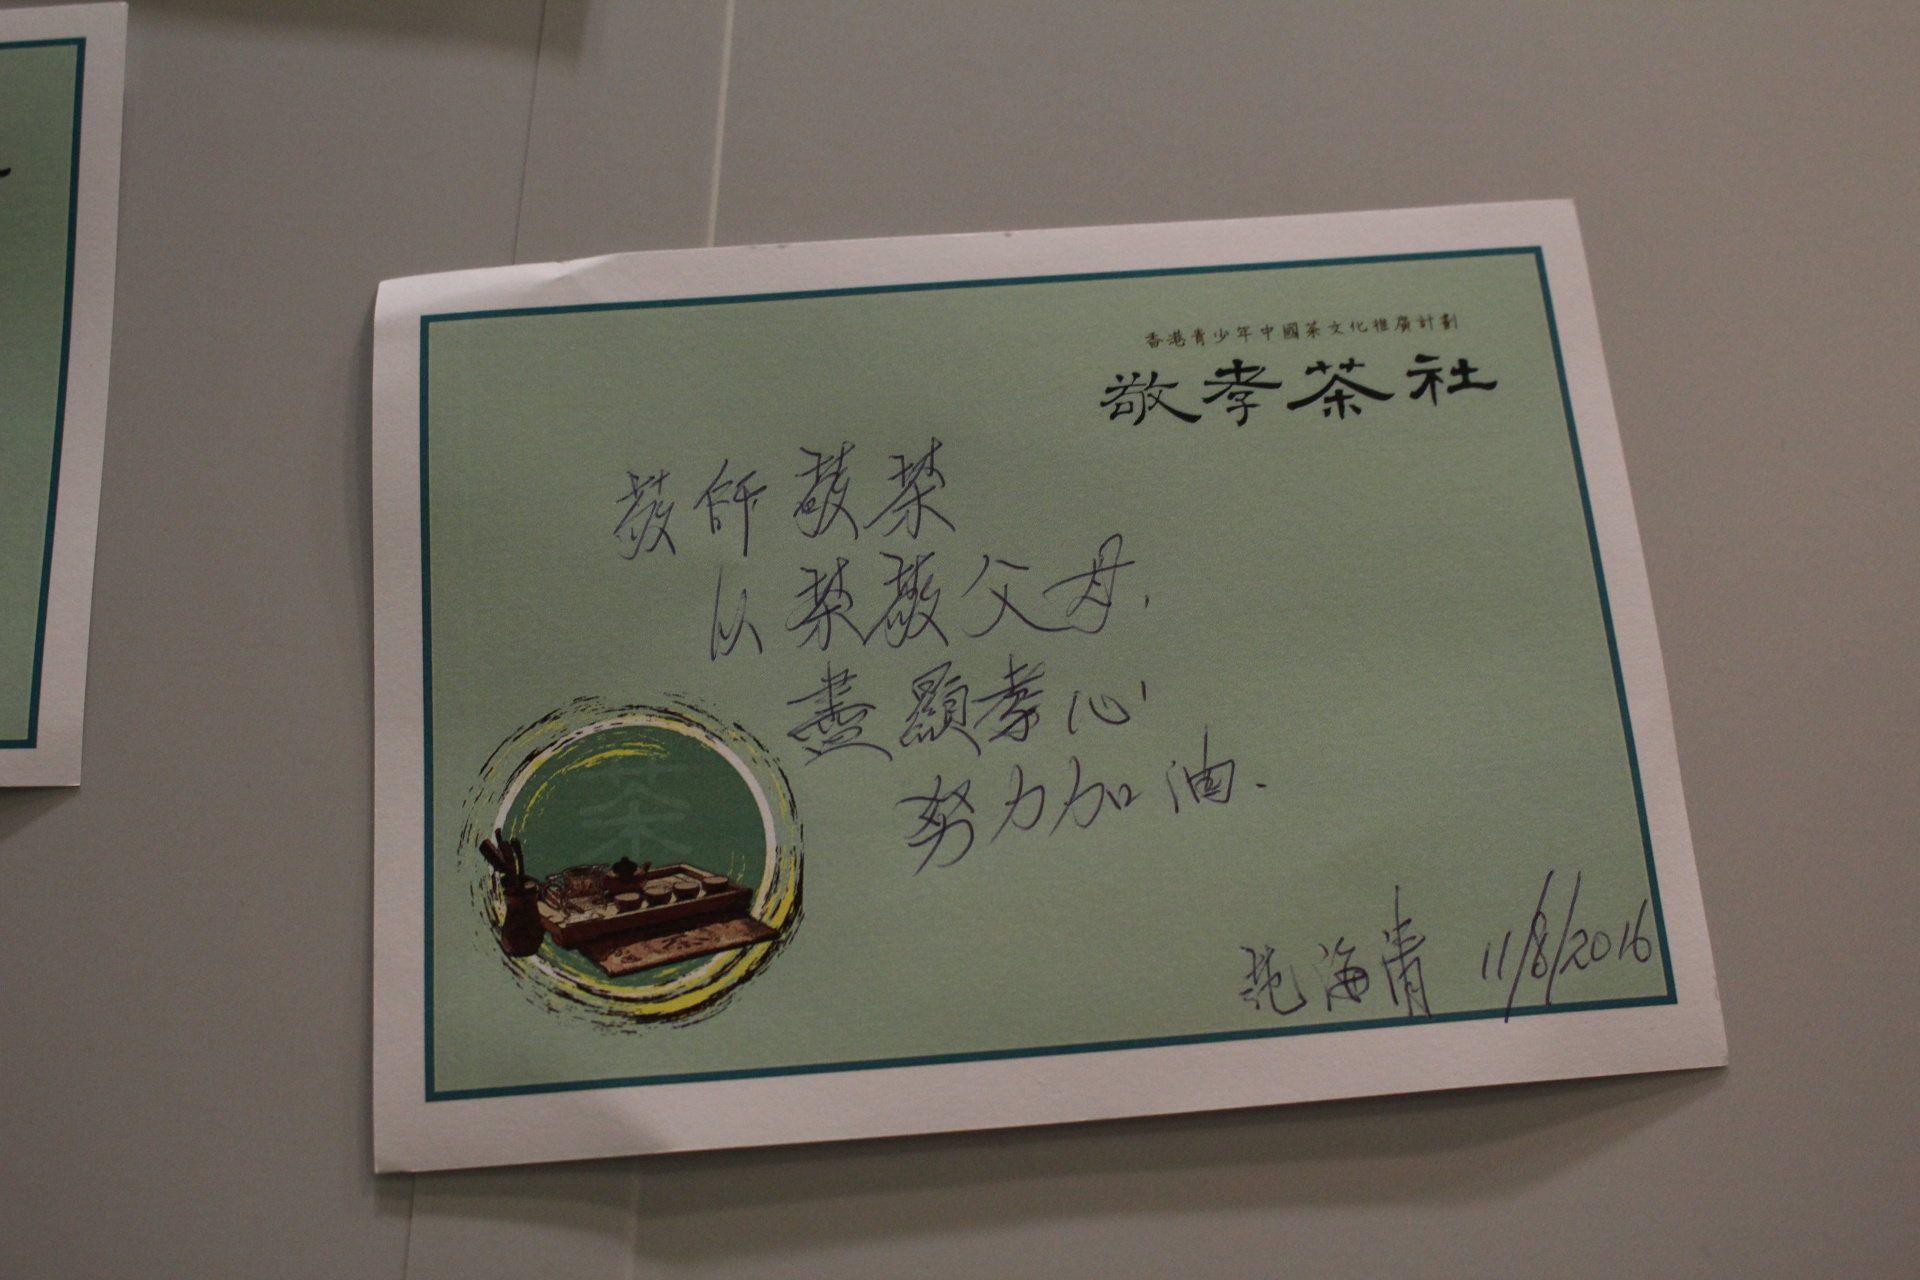 香港青少年中國茶文化推廣計劃
敬孝茶社
敬師敬茶
以茶敬父母,
盡顯孝心
努力加油.
茶
范海青 11/8/2016